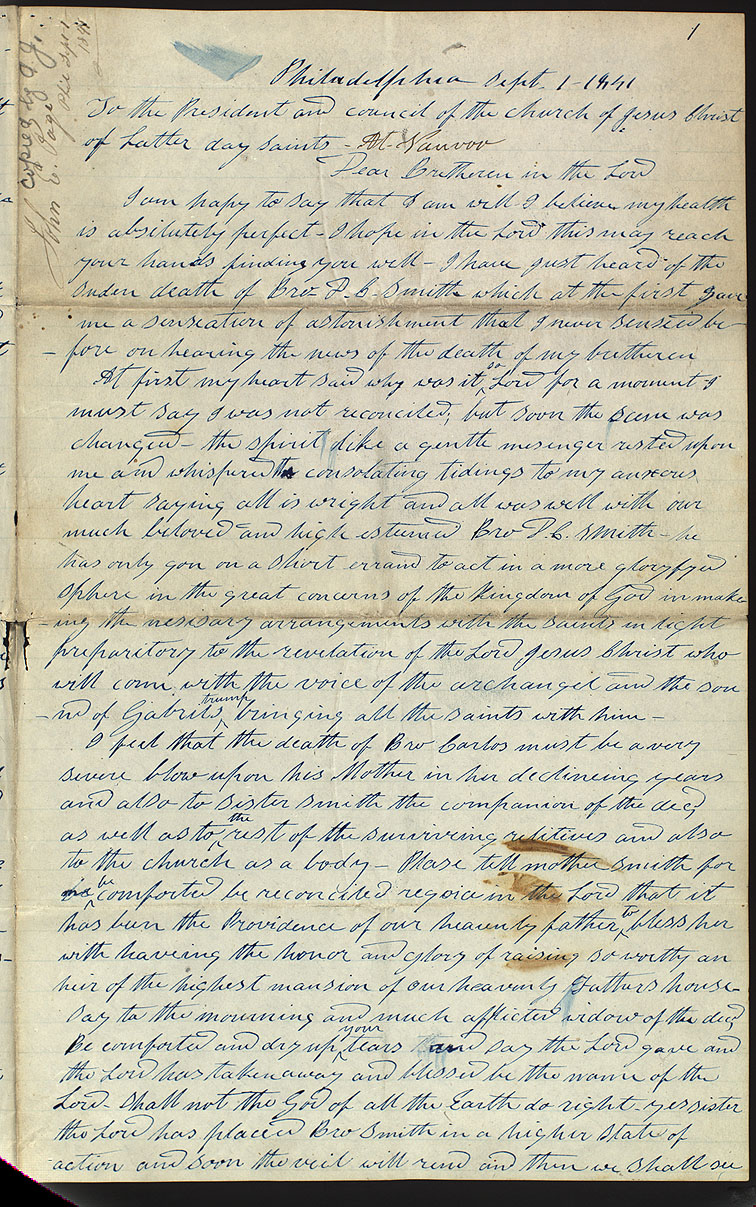 1
copied by J. J.
John E. Page
Phil Sept 1
1841
Philadelphia Sept. 1-1841
To the President and council of the church of Jesus Christ
of Latter day Saints - At Nauvoo
Dear Bretheren in the Lord
I am hapy to say that I am well I believe my health
is absolutely perfect - I hope in the Lord this may reach
your hands finding you well - I have just heard of the
suden death of Bro- D. C. Smith which at the first gave
me a senseation of astonishment that I never senseed be-
-fore on hearing the news of the death of my bretheren
At first my heart said why was it so Lord for a moment I
must say I was not reconciled; but soon the scene was
changed - the spirit like a gentle mesenger rested upon
me and whispered consolating tidings to my anxious
heart saying all is wright and all was well with our
much beloved and high esteemed Bro D. C. Smith - he
has only gon on a short errand to act in a more gloryfyed
sphere in the great concerns of the kingdom of God in make-
-ing the nesisary arrangements with the saints in light
preparitory to the revelation of the Lord Jesus Christ who
will come with the voice of the archangel and the sou
-nd of Gabriels trump bringing all the saints with him -
I feel that the death of Bro Carlos must be a very
severe blow upon his Mother in her declineing years
and also to sister Smith the companion of the decd
as well as to the rest of the surviveing relitives and also
to the church as a body - Plase tell mother Smith for
be comforted be reconciled regoice in the Lord that it
has been the Providence of our heavenly father to bless her
with haveing the honor and glory of raising so worthy an
heir of the highest mansion of our heavenly Fathers house-
say to the mourning and much afflicted widow of the decd
Be comforted and dry up your tears and say the Lord gave and
the Lord has taken away and blessed be the name of the
Lord - shall not the God of all the Earth do right - yes sister
the Lord has placed Bro Smith in a higher state of
action and soon the veil will rend and then we shall see